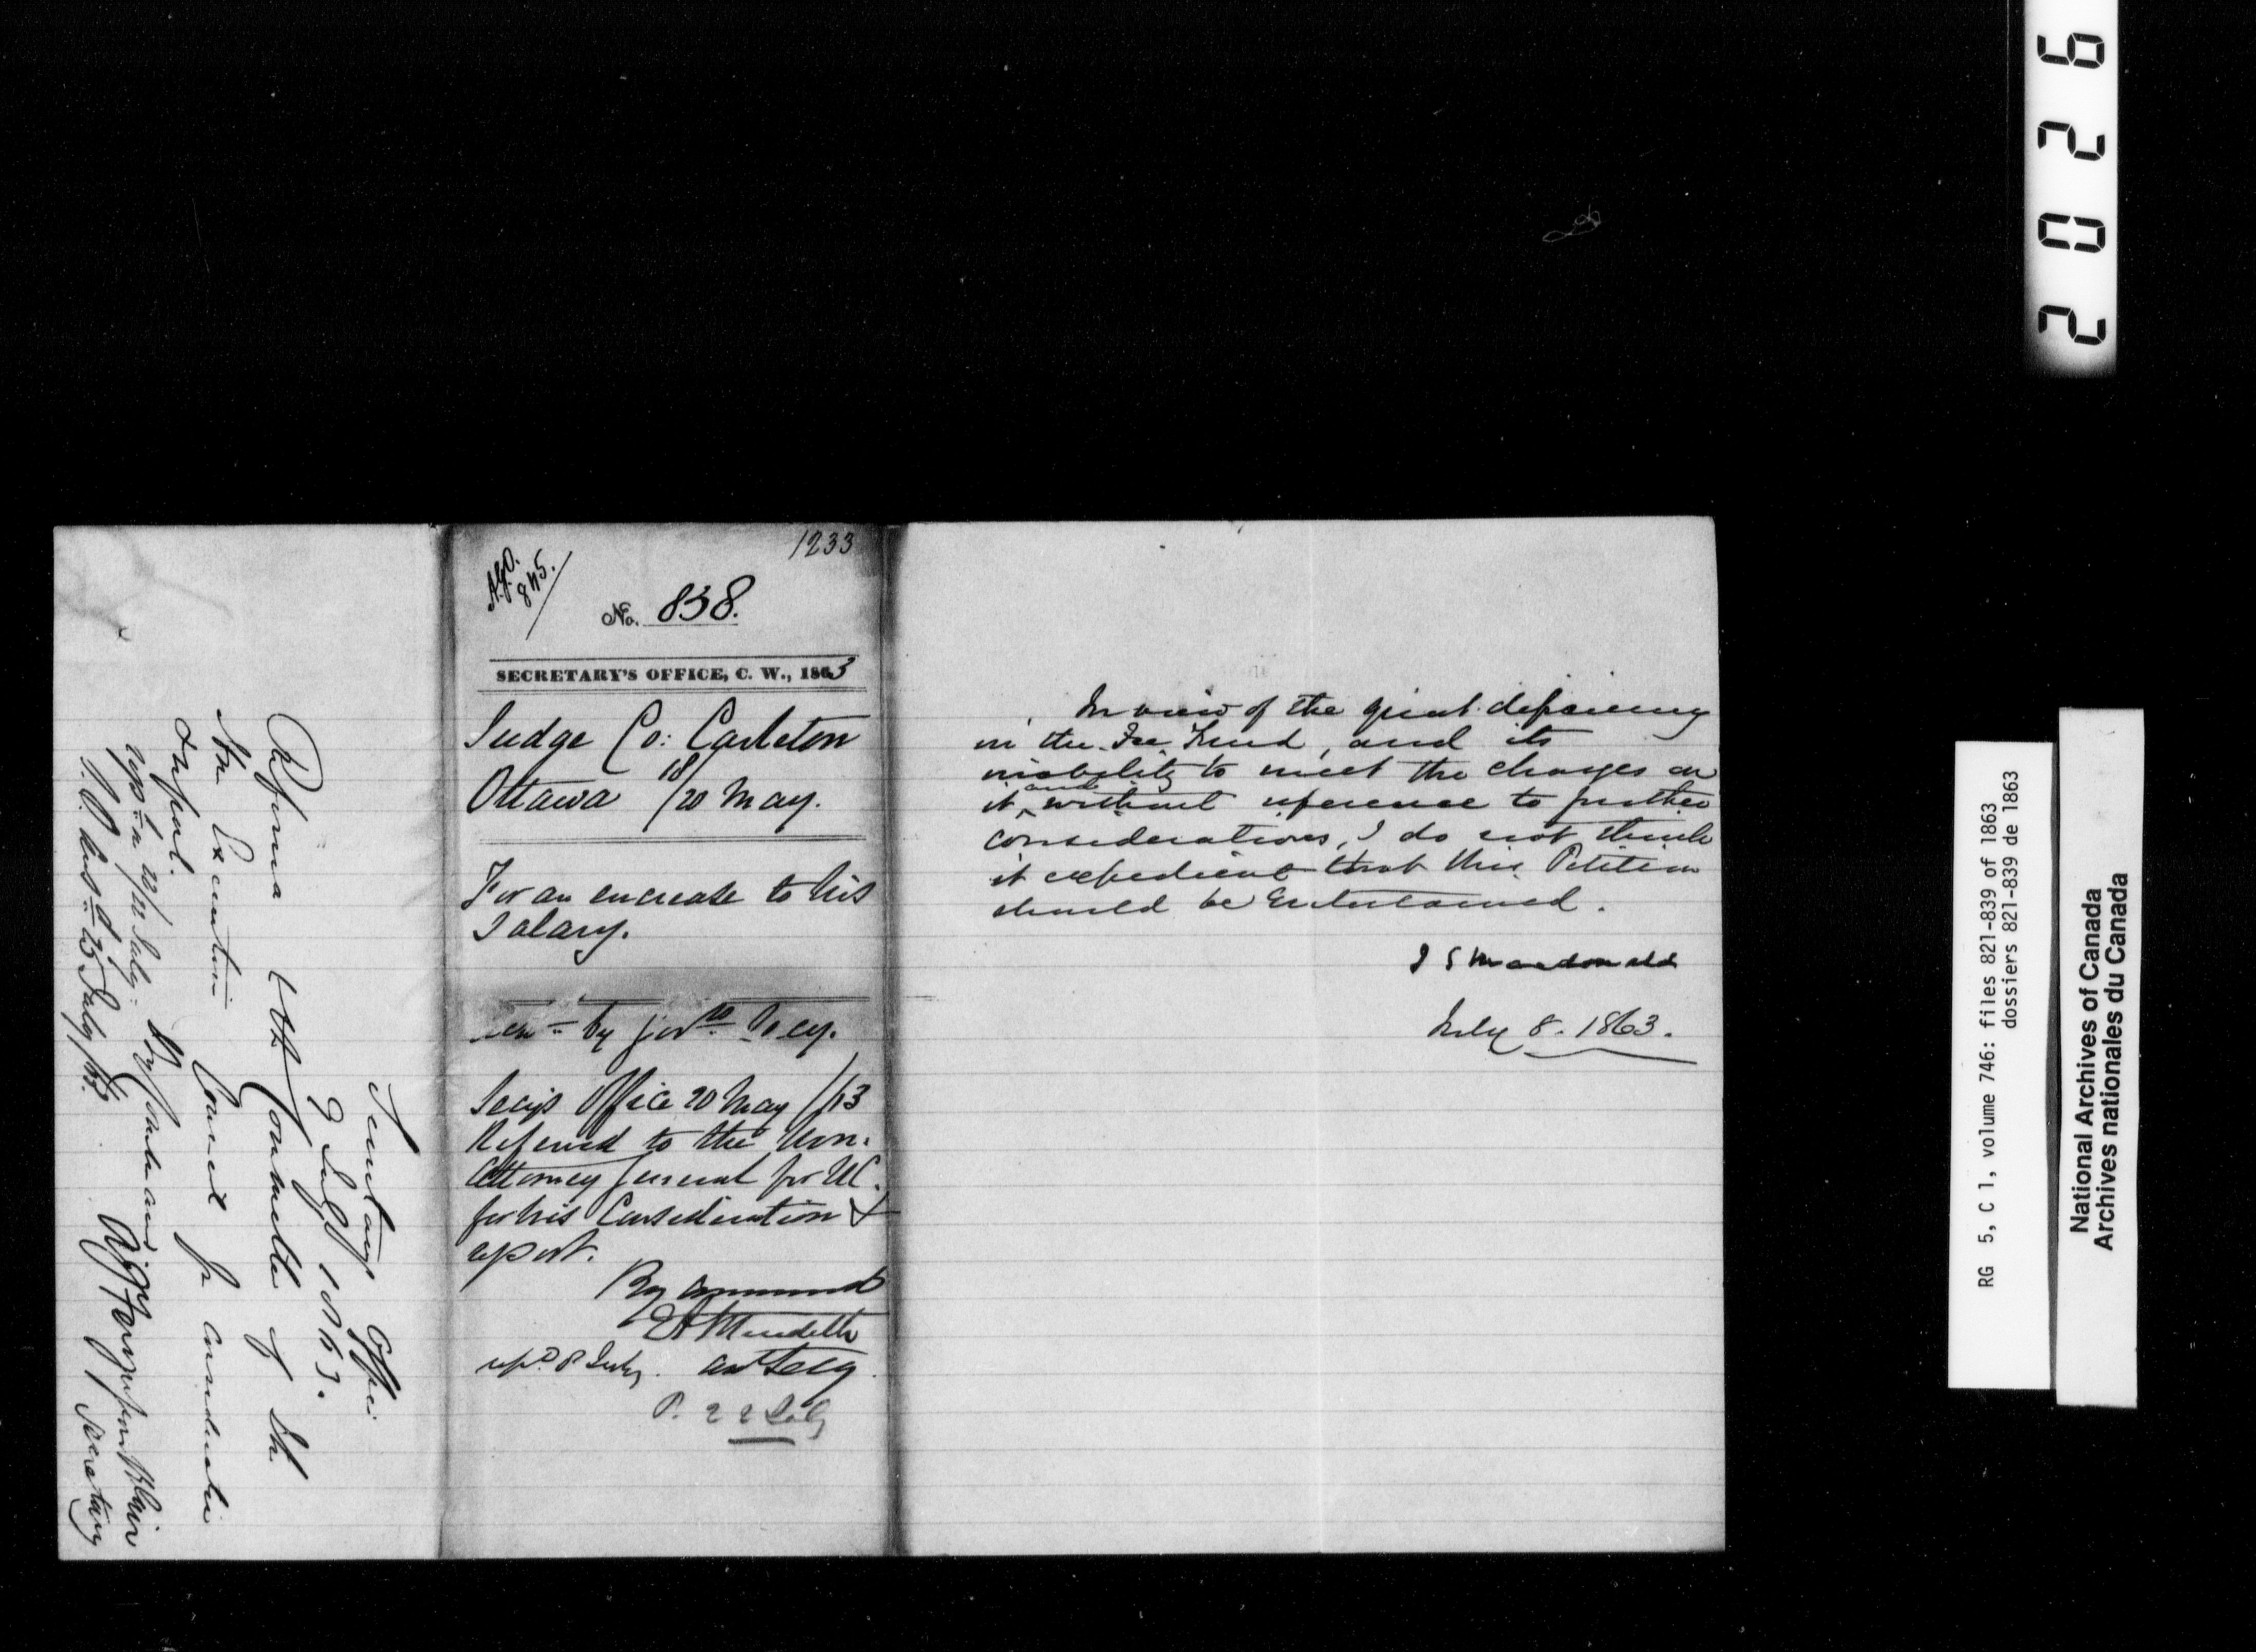 2026
1233
A.G.O.
845.
No. 838.
SECRETARY'S OFFICE, C. W., 1863
Judge Co: Carleton
Ottawa 18/20 May.
For an encrease to his
Salary.
by Secy.
Secy's Office 20 May /63
Referred to the Hon.
Attorney General for UC.
for his Consideration &
report.
By Command
E A Meredith
Asst Secy.
rept. 8 July.
P. 22 July
In view of the great deficiency
in the Fee Fund, and its
inability to meet the charges on
it, and without reference to further
considerations, I do not think
it expedient that this Petition
should be Entertained.
J S Macdonald
July 8. 1863.
Secretary's Office
9 July 1863.
Referred to the Committee of the
Hon Executive Council for consideration
& report.
By Command
A J Fergusson Blair
Secretary
22 July
25 July /63.
RG 5, C 1, volume 746: files 821-839 of 1863
dossiers 821-839 de 1863
National Archives of Canada
Archives nationales du Canada